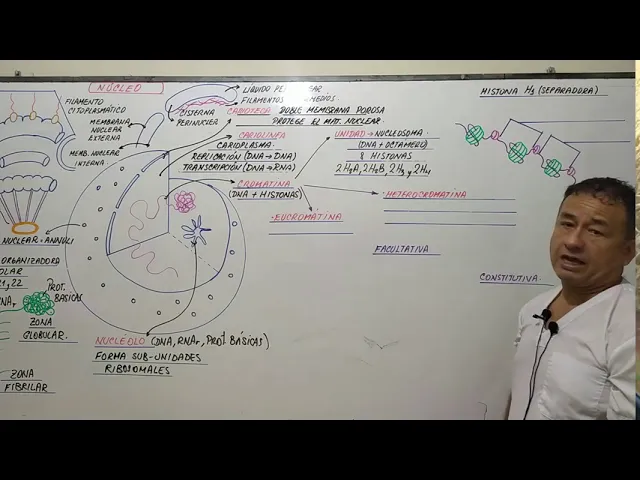 NÚCLEO
FILAMENTO
CITOPLASMÁTICO
MEMBRANA
NUCLEAR
EXTERNA
MEMB. NUCLEAR
INTERNA
CISTERNA
PERINUCLEAR
LÍQUIDO
FILAMENTOS
CARIOTECA DOBLE MEMBRANA POROSA
PROTEGE EL MAT. NUCLEAR
CARIOLINFA
CARIOPLASMA
REPLICACIÓN (DNA→DNA)
TRANSCRIPCIÓN (DNA→RNA)
CROMATINA
(DNA + HISTONAS)
·EUCROMATINA
UNIDAD → NUCLEOSOMA
(DNA + OCTAMERO)
8 HISTONAS
2H2A, 2H2B, 2H3 y 2H4
·HETEROCROMATINA
FACULTATIVA
CONSTITUTIVA
HISTONA H1 (SEPARADORA)
NUCLEAR = ANNULI
ORGANIZADORA
PROT.
BÁSICAS
ZONA
GLOBULAR.
ZONA
FIBRILAR
NUCLEOLO (DNA, RNAr, PROT. BÁSICAS)
FORMA SUB-UNIDADES
RIBOSOMALES